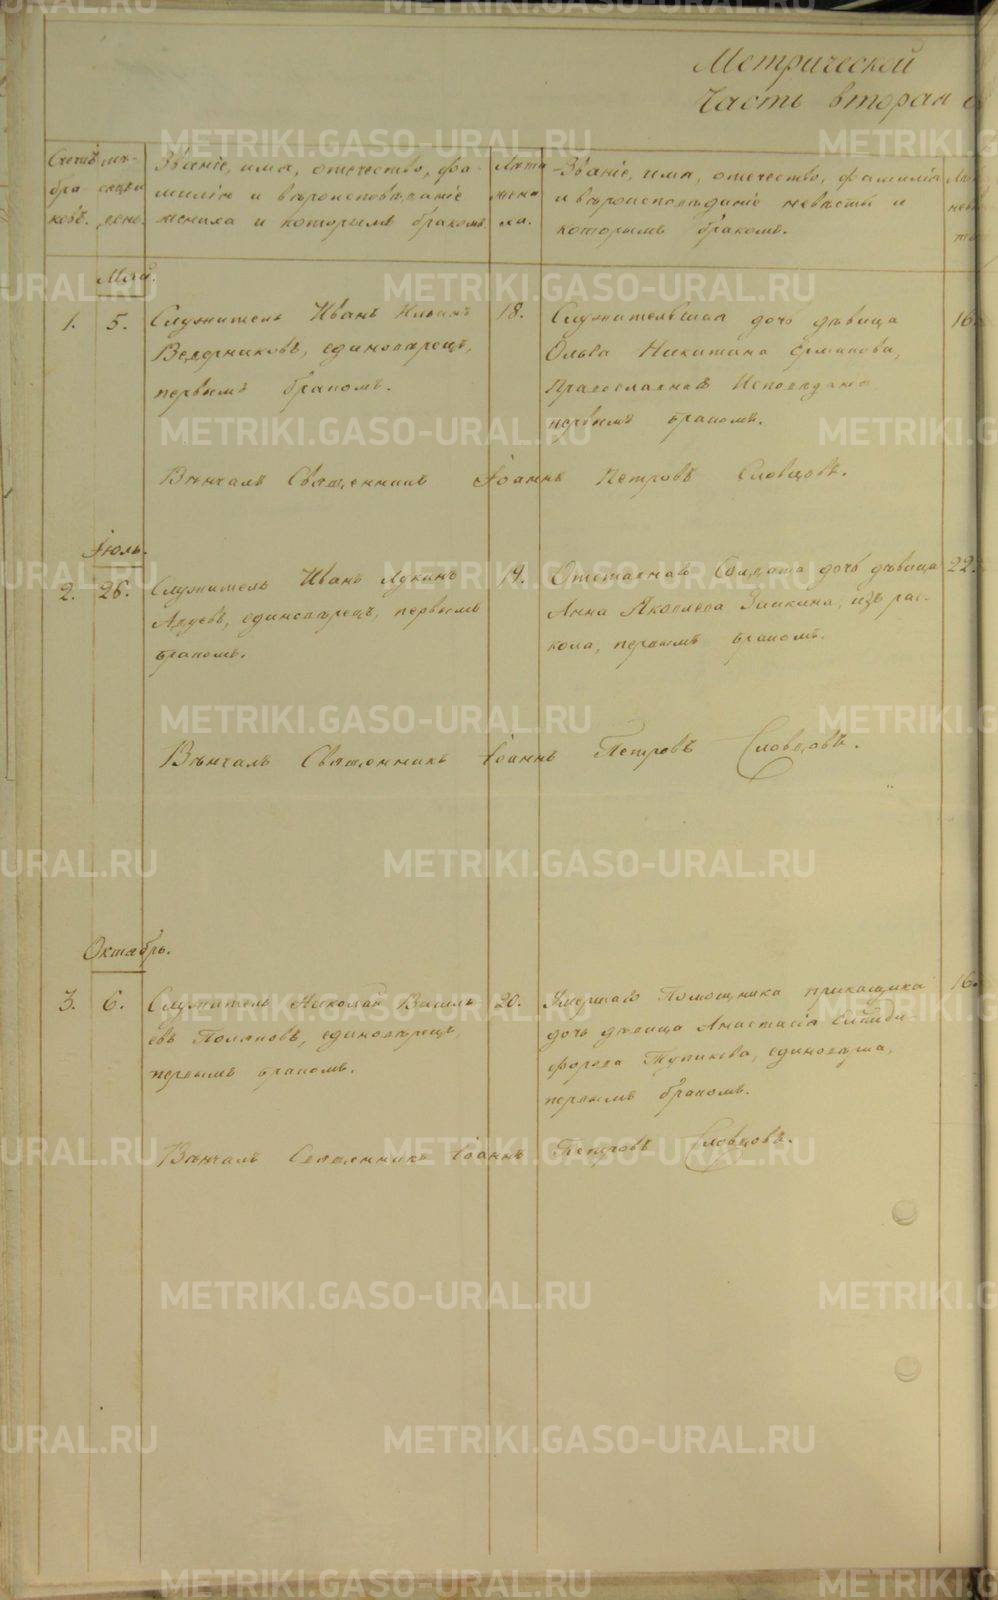 Метрической
Часть вторая
Счетъ бра- ковъ.
мѣ- сяцъ и день.
Званіе, имя, отечество, фа-
милію и вѣроисповѣданіе
жениха и которымъ бракомъ.
Лѣта
жени
ха.
Званіе, имя, отечество, фамилія
и вѣроисповѣданіе невѣсты и
которымъ бракомъ.
Май.
1. 5. Служитель Иванъ Ильинъ 18. Служительская дочь дѣвица 16.
Ведерниковъ, единовѣрецъ, Ольга Никитина Ермакова,
первымъ бракомъ. Православнаго Исповѣданія
первымъ бракомъ.
Вѣнчалъ Священникъ Іоаннъ Петровъ Словцовъ.
Іюль.
2. 26. Служитель Иванъ Лукинъ 19. Отставнаго Солдата дочь дѣвица 22.
единовѣрецъ, первымъ Анна Яковлева Зыикина, изъ рас-
бракомъ. кола, первымъ бракомъ.
Вѣнчалъ Священникъ Іоаннъ Петровъ Словцовъ.
Октябрь.
3. 6. Служитель Николай Василь 20. Умершаго Помощника прикащика 16.
евъ Поляковъ, единовѣрецъ, дочь дѣвица Анастасія
первымъ бракомъ. форова Тупикова, единовѣрка,
первымъ бракомъ.
Вѣнчалъ Священникъ Іоаннъ Петровъ Словцовъ.
METRIKI.GASO-URAL.RU